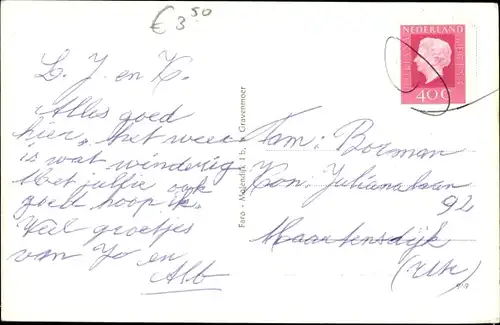 € 3,50
L. J. en K.
Alles goed
hier, het weer
is wat winderig
Met jullie ook
goed hoop ik.
Veel groetjes
van Jo en
Alb
Faro - Molendijk 1 b, 's Gravenmoer
NEDERLAND
40c
Fam: Borman
Kon. Julianalaan
92
Maartensdijk
(Utr)